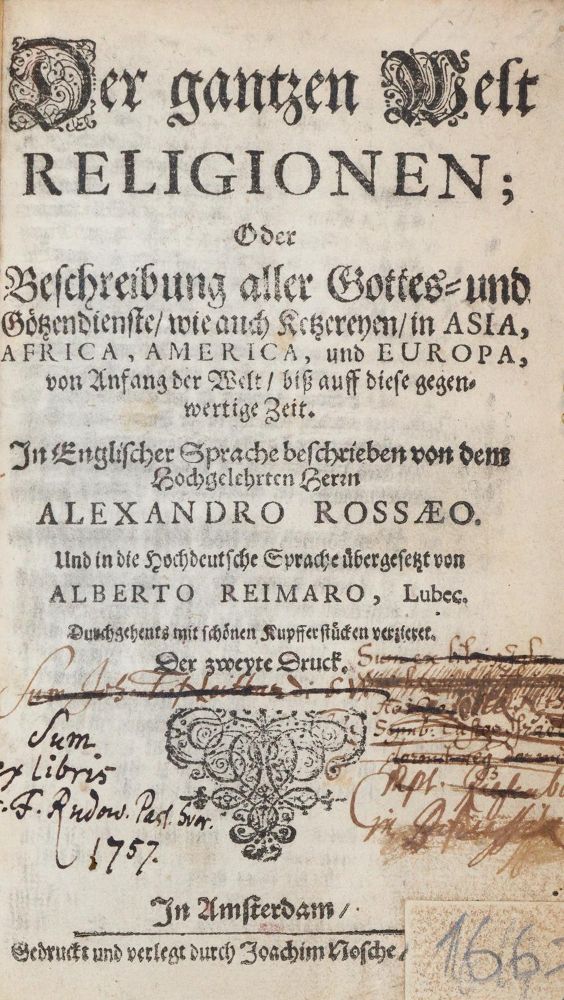 Der gantzen Welt
RELIGIONEN;
Oder
Beschreibung aller Gottes-und
Götzendienste/ wie auch Ketzereyen/ in ASIA,
AFRICA, AMERICA, und EUROPA,
von Anfang der Welt/ biß auff diese gegen-
wertige Zeit.
In Englischer Sprache beschrieben von dem
Hochgelehrten Herrn
ALEXANDRO ROSSÆO.
Und in die Hochdeutsche Sprache übergesetzt von
ALBERTO REIMARO, Lubec.
Durchgehents mit schönen Kupfferstücken verzieret.
Der zweyte Druck.
Sum ex
Sum
Sum
ex libris
F. Rudow. Past.
1757.
In Amsterdam/
Gedruckt und verlegt durch Joachim Nosche/
166